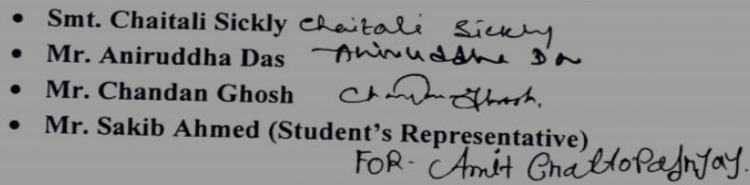 • Smt. Chaitali Sickly Chaitali Sickly
• Mr. Aniruddha Das Aniruddha Das
• Mr. Chandan Ghosh Chandan Ghosh.
• Mr. Sakib Ahmed (Student's Representative)
FOR- Amit Chattopadhyay.